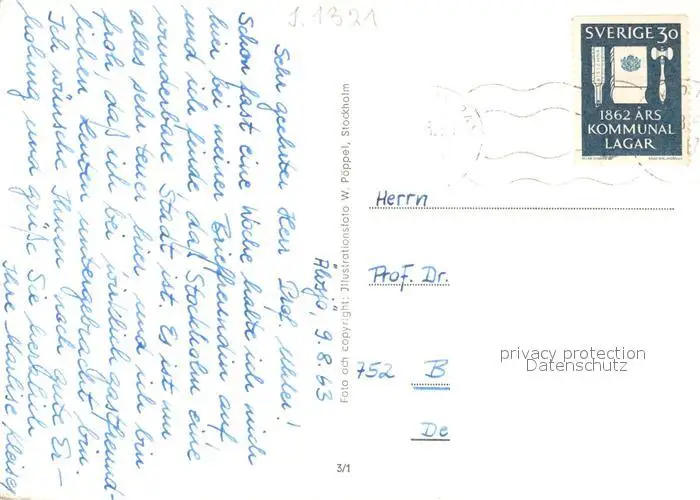 S. 1321
Älvsjö, 9.8.63
Sehr geehrter Herr Prof.
Schon fast eine Woche halte ich mich
hier bei meiner Brieffreundin auf
und ich finde daß Stockholm eine
wunderbare Stadt ist. Es ist nur
alles sehr teuer hier und ich bin
froh, daß ich bei wirklich gastfreund-
lichen Leuten untergebracht bin.
Ich wünsche Ihnen noch gute Er-
holung und grüße Sie herzlich
Ihre Marlise
Foto och copyright: Illustrationsfoto W. Pöppel, Stockholm
3/1
SVERIGE 30
1862 ÅRS
KOMMUNAL
LAGAR
Herrn
Prof. Dr.
752 B
De
privacy protection
Datenschutz